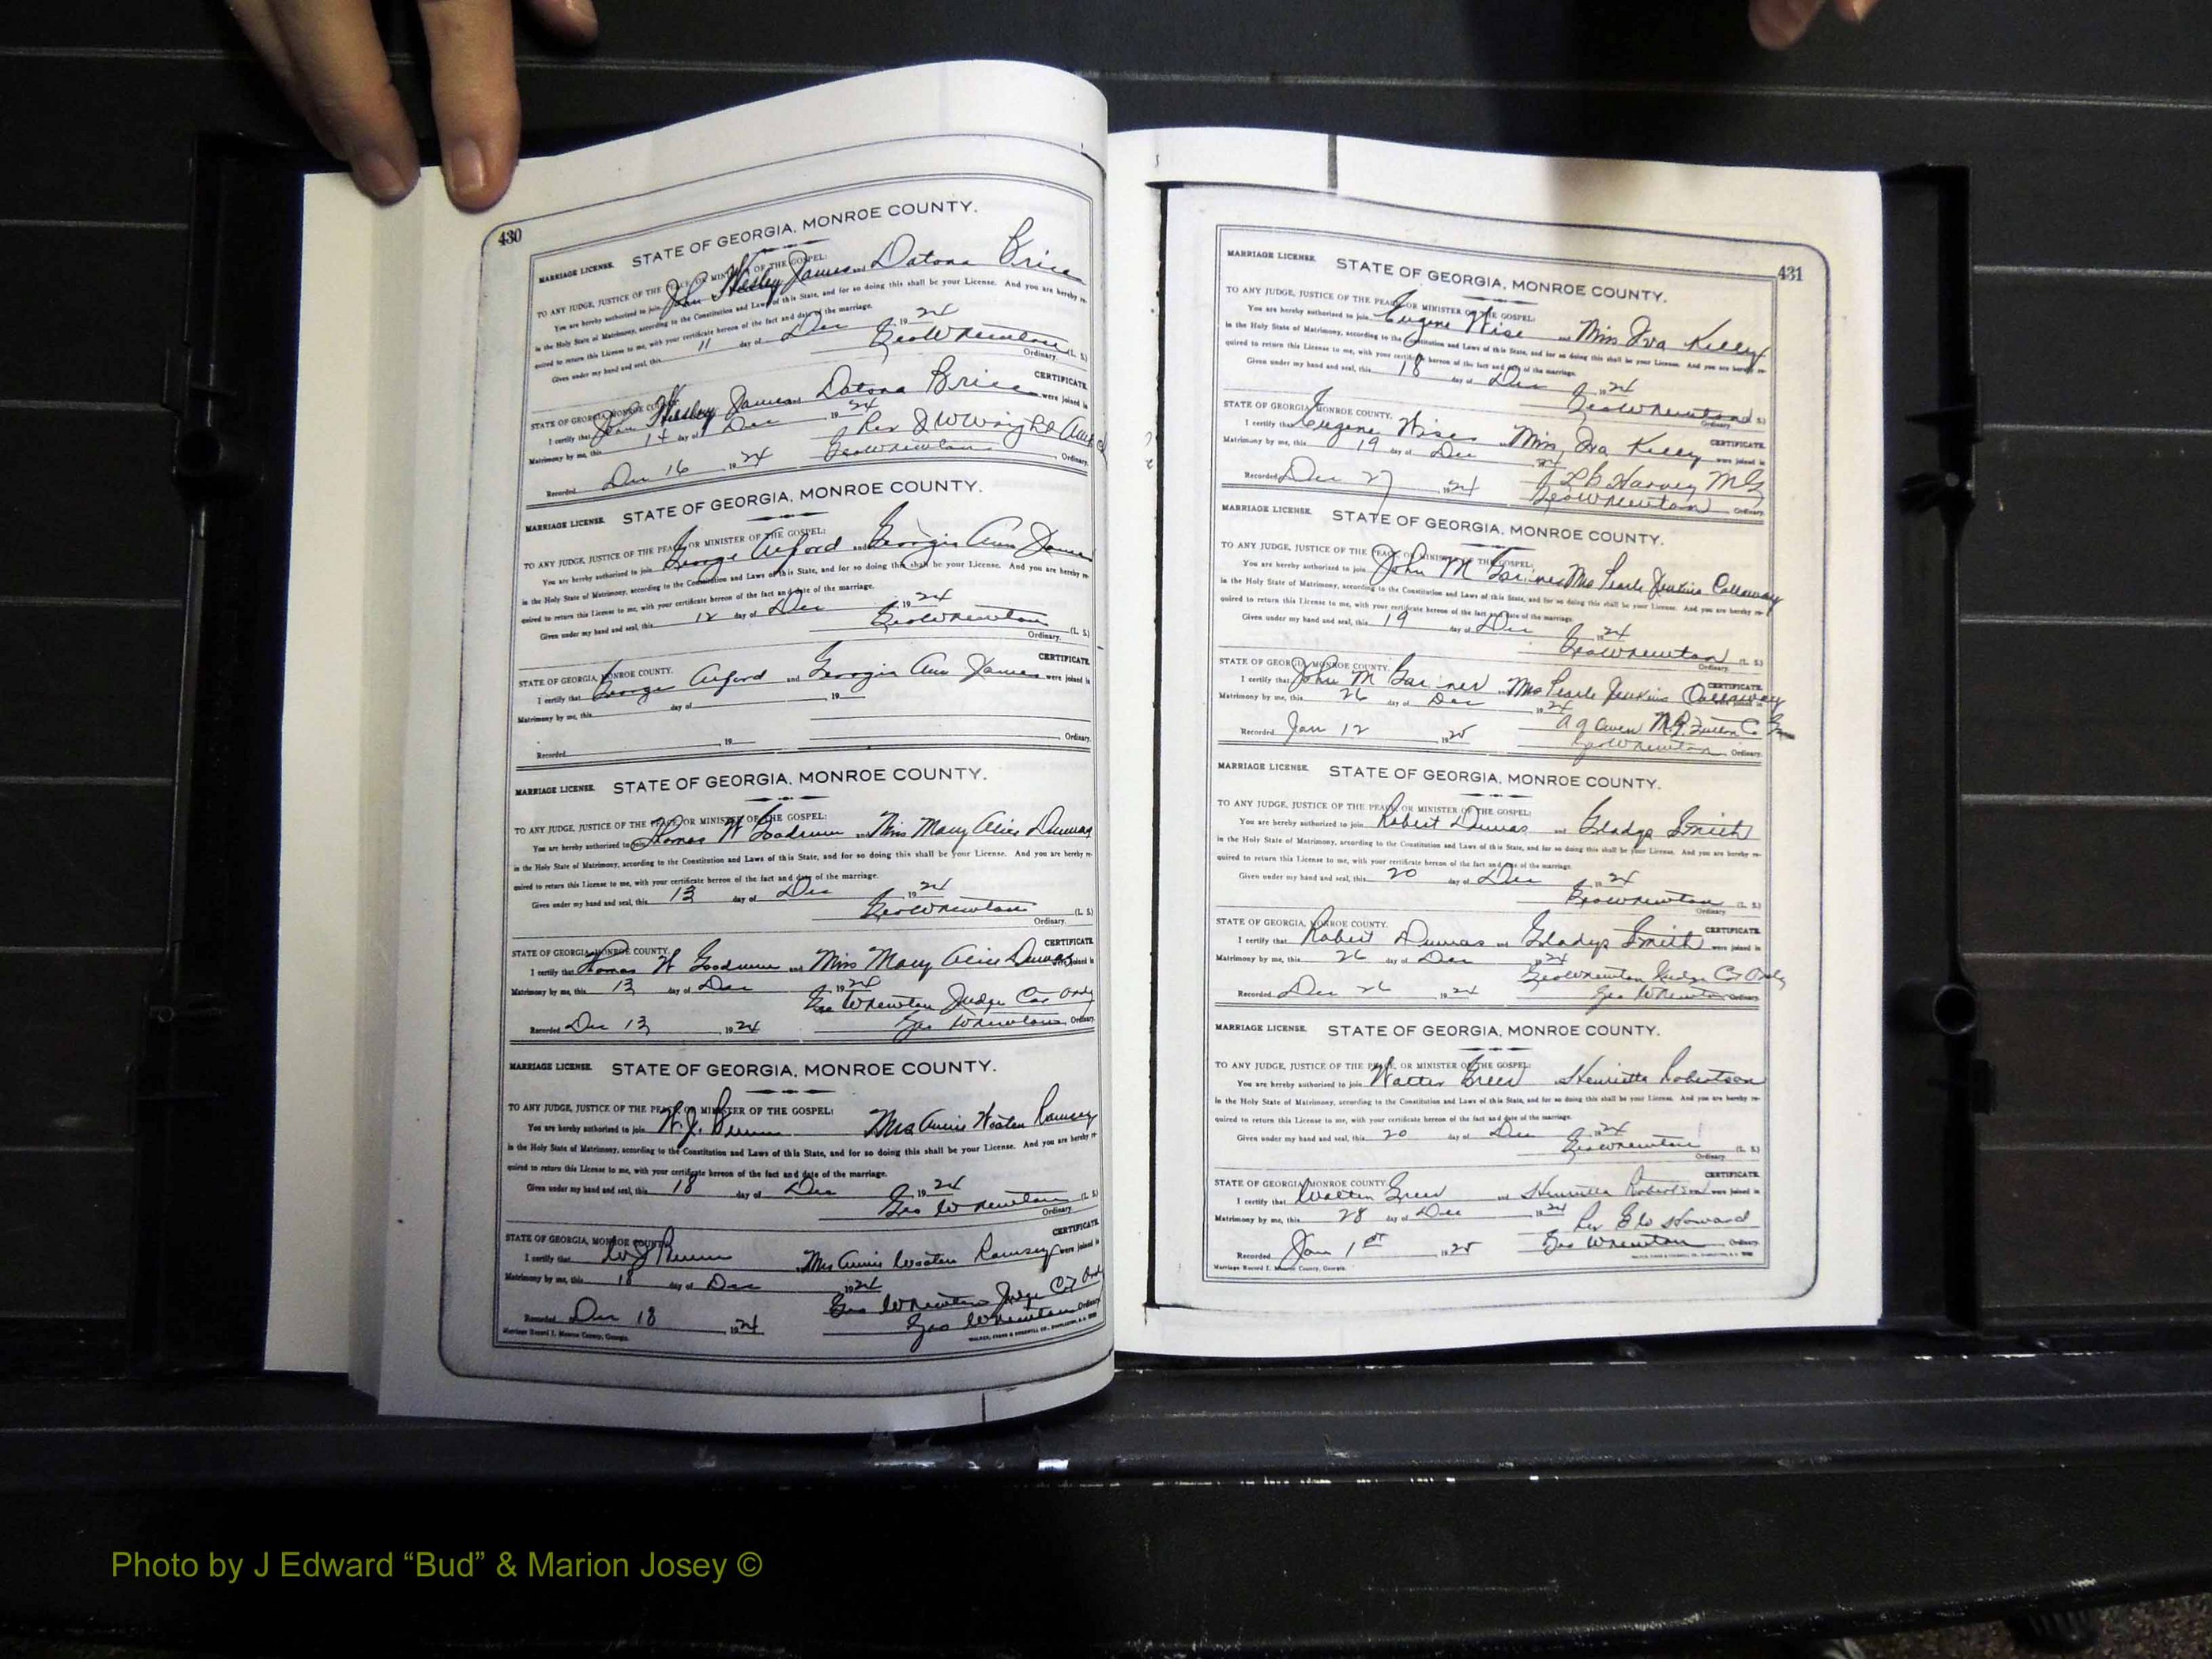 430
MARRIAGE LICENSE. STATE OF GEORGIA, MONROE COUNTY.
TO ANY JUDGE, JUSTICE OF THE PEACE OR MINISTER OF THE GOSPEL:
You are hereby authorized to join John Wesley James and Datona Brice
in the Holy State of Matrimony, according to the Constitution and Laws of this State, and for so doing this shall be your License. And you are hereby re-
quired to return this License to me, with your certificate hereon of the fact and date of the marriage.
Given under my hand and seal, this 11 day of Dec 1924
Geo W Newton (L. S.)
Ordinary.
CERTIFICATE.
STATE OF GEORGIA, MONROE COUNTY.
I certify that John Wesley James Datona Brice were joined in
Matrimony by me, this 14 day of Dec 1924
Rev
Recorded Dec 16 1924 Geo W Newton Ordinary.
MARRIAGE LICENSE. STATE OF GEORGIA, MONROE COUNTY.
TO ANY JUDGE, JUSTICE OF THE PEACE OR MINISTER OF THE GOSPEL:
You are hereby authorized to join George Alford and Georgia Ann James
in the Holy State of Matrimony, according to the Constitution and Laws of this State, and for so doing this shall be your License. And you are hereby re-
quired to return this License to me, with your certificate hereon of the fact and date of the marriage.
Given under my hand and seal, this 12 day of Dec 1924
Geo W Newton (L. S.)
Ordinary.
CERTIFICATE.
STATE OF GEORGIA, MONROE COUNTY.
I certify that George Alford and Georgia Ann James were joined in
Matrimony by me, this day of 19
Recorded 19 Ordinary.
MARRIAGE LICENSE. STATE OF GEORGIA, MONROE COUNTY.
TO ANY JUDGE, JUSTICE OF THE PEACE OR MINISTER OF THE GOSPEL:
You are hereby authorized to join Thomas W Goodrum and Miss Mary Alice Dumas
in the Holy State of Matrimony, according to the Constitution and Laws of this State, and for so doing this shall be your License. And you are hereby re-
quired to return this License to me, with your certificate hereon of the fact and date of the marriage.
Given under my hand and seal, this 13 day of Dec 1924
Geo W Newton (L. S.)
Ordinary.
CERTIFICATE.
STATE OF GEORGIA, MONROE COUNTY.
I certify that Thomas W Goodrum and Miss Mary Alice Dumas were joined in
Matrimony by me, this 13 day of Dec 1924
Geo W Newton Judge Ct Ordy
Recorded Dec 13 1924 Geo W Newton Ordinary.
MARRIAGE LICENSE. STATE OF GEORGIA, MONROE COUNTY.
TO ANY JUDGE, JUSTICE OF THE PEACE, OR MINISTER OF THE GOSPEL:
You are hereby authorized to join W. J. Mrs Annie Wooten Ramsey
in the Holy State of Matrimony, according to the Constitution and Laws of this State, and for so doing this shall be your License. And you are hereby re-
quired to return this License to me, with your certificate hereon of the fact and date of the marriage.
Given under my hand and seal, this 18 day of Dec 1924
Geo W Newton (L. S.)
Ordinary.
CERTIFICATE.
STATE OF GEORGIA, MONROE COUNTY.
I certify that W J Mrs Annie Wooten Ramsey were joined in
Matrimony by me, this 18 day of Dec 1924
Geo W Newton Judge Ct Ord
Recorded Dec 18 1924 Geo W Newton Ordinary.
Marriage Record I. Monroe County, Georgia.
431
MARRIAGE LICENSE. STATE OF GEORGIA, MONROE COUNTY.
TO ANY JUDGE, JUSTICE OF THE PEACE OR MINISTER OF THE GOSPEL:
You are hereby authorized to join Eugene Wise and Miss Iva Kelley
in the Holy State of Matrimony, according to the Constitution and Laws of this State, and for so doing this shall be your License. And you are hereby re-
quired to return this License to me, with your certificate hereon of the fact and date of the marriage.
Given under my hand and seal, this 18 day of Dec 1924
Geo W Newton (L. S.)
Ordinary.
CERTIFICATE.
STATE OF GEORGIA, MONROE COUNTY.
I certify that Eugene Wise Miss Iva Kelley were joined in
Matrimony by me, this 19 day of Dec 1924
Harvey M G
Recorded Dec 27 1924 Geo W Newton Ordinary.
MARRIAGE LICENSE. STATE OF GEORGIA, MONROE COUNTY.
TO ANY JUDGE, JUSTICE OF THE PEACE OR MINISTER OF THE GOSPEL:
You are hereby authorized to join John M Mrs Pearle Jenkins Callaway
in the Holy State of Matrimony, according to the Constitution and Laws of this State, and for so doing this shall be your License. And you are hereby re-
quired to return this License to me, with your certificate hereon of the fact and date of the marriage.
Given under my hand and seal, this 19 day of Dec 1924
Geo W Newton (L. S.)
Ordinary.
CERTIFICATE.
STATE OF GEORGIA, MONROE COUNTY.
I certify that John M Mrs Pearle Jenkins Callaway were joined in
Matrimony by me, this 26 day of Dec 1924
Owen M.G. Fulton Co
Recorded Jan 12 1925 Geo W Newton Ordinary.
MARRIAGE LICENSE. STATE OF GEORGIA, MONROE COUNTY.
TO ANY JUDGE, JUSTICE OF THE PEACE, OR MINISTER OF THE GOSPEL:
You are hereby authorized to join Robert Dumas and Gladys Smith
in the Holy State of Matrimony, according to the Constitution and Laws of this State, and for so doing this shall be your License. And you are hereby re-
quired to return this License to me, with your certificate hereon of the fact and date of the marriage.
Given under my hand and seal, this 20 day of Dec 1924
Geo W Newton (L. S.)
Ordinary
CERTIFICATE.
STATE OF GEORGIA, MONROE COUNTY.
I certify that Robert Dumas and Gladys Smith were joined in
Matrimony by me, this 26 day of Dec 1924
Geo W Newton Judge Ct Ordy
Recorded Dec 26 1924 Geo W Newton Ordinary.
MARRIAGE LICENSE. STATE OF GEORGIA, MONROE COUNTY.
TO ANY JUDGE, JUSTICE OF THE PEACE, OR MINISTER OF THE GOSPEL:
You are hereby authorized to join Walter Greer Henrietta Robertson
in the Holy State of Matrimony, according to the Constitution and Laws of this State, and for so doing this shall be your License. And you are hereby re-
quired to return this License to me, with your certificate hereon of the fact and date of the marriage.
Given under my hand and seal, this 20 day of Dec 1924
Geo W Newton (L. S.)
Ordinary
CERTIFICATE.
STATE OF GEORGIA, MONROE COUNTY.
I certify that Walter Greer and Henrietta Robertson were joined in
Matrimony by me, this 28 day of Dec 1924
Rev Howard
Recorded Jan 1st 1925 Geo W Newton Ordinary.
Marriage Record I. Monroe County, Georgia.
Photo by J Edward “Bud” & Marion Josey ©